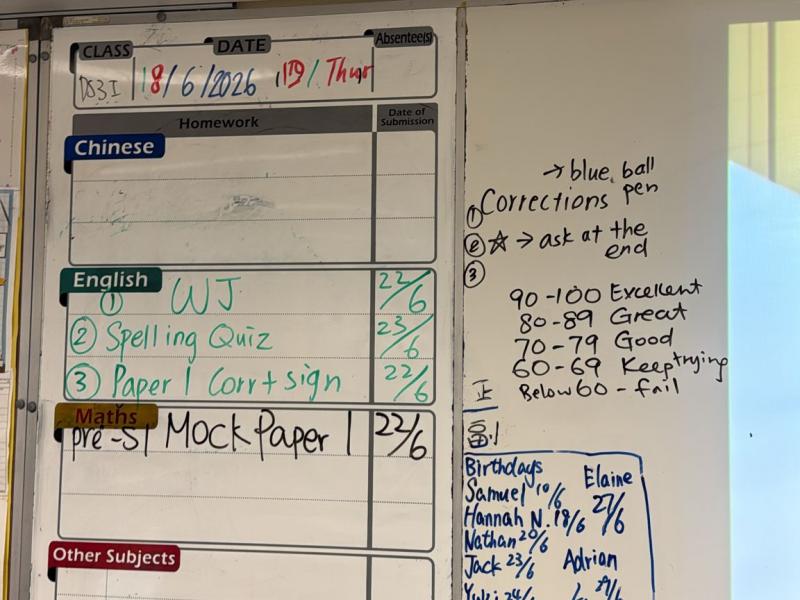 CLASS DATE Absentee(s)
DS3 I 18/6/2026 Thur
Homework Date of Submission
Chinese
English
① WJ 22/6
② Spelling Quiz 23/6
③ Paper 1 Corr + sign 22/6
Maths
pre-S1 Mock Paper 1 22/6
Other Subjects
→ blue, ball pen
① Corrections
② ☆ → ask at the end
③
90-100 Excellent
80-89 Great
70-79 Good
60-69 Keep trying
Below 60 - fail
正
副
Birthdays
Samuel 10/6
Hannah N. 18/6
Nathan 20/6
Jack 23/6
Elaine 27/6
Adrian